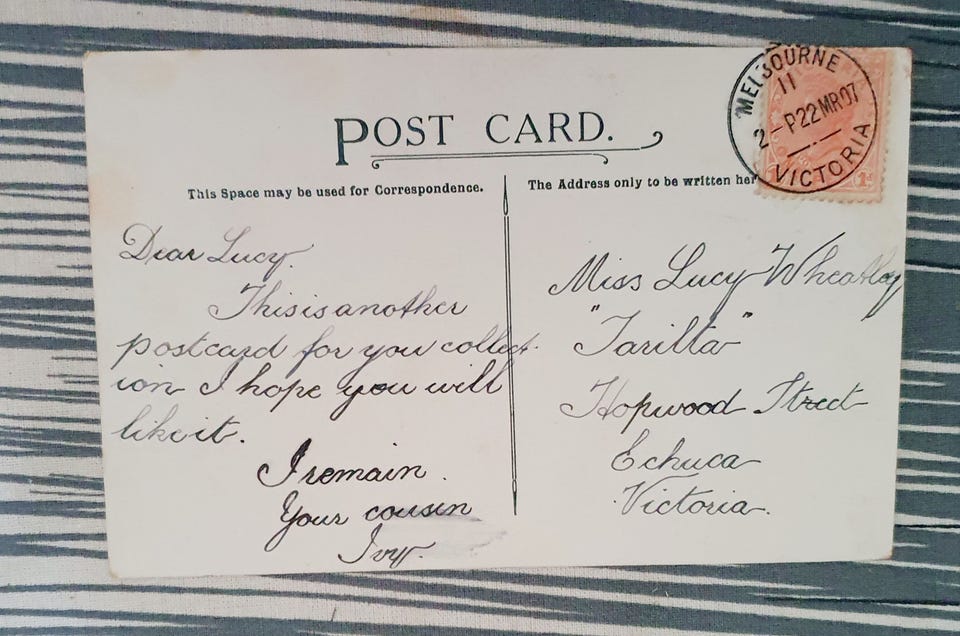 POST CARD.
This Space may be used for Correspondence.
The Address only to be written her
MELBOURNE
11
2-P 22 MR 07
VICTORIA
1d
Dear Lucy.
This is another
postcard for you collect-
ion I hope you will
like it.
I remain.
Your cousin
Ivy.
Miss Lucy Wheatley
"Tarilta"
Hopwood Street
Echuca
Victoria.